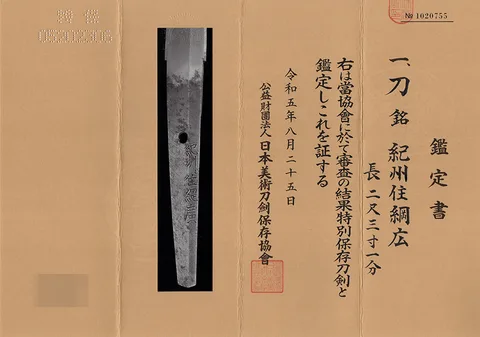 № 1020755
鑑定書
一、刀 銘 紀州住綱広
長 二尺三寸一分
右は當協會に於て審査の結果特別保存刀剣と
鑑定しこれを証する
令和五年八月二十五日
公益財團法人 日本美術刀劍保存協會